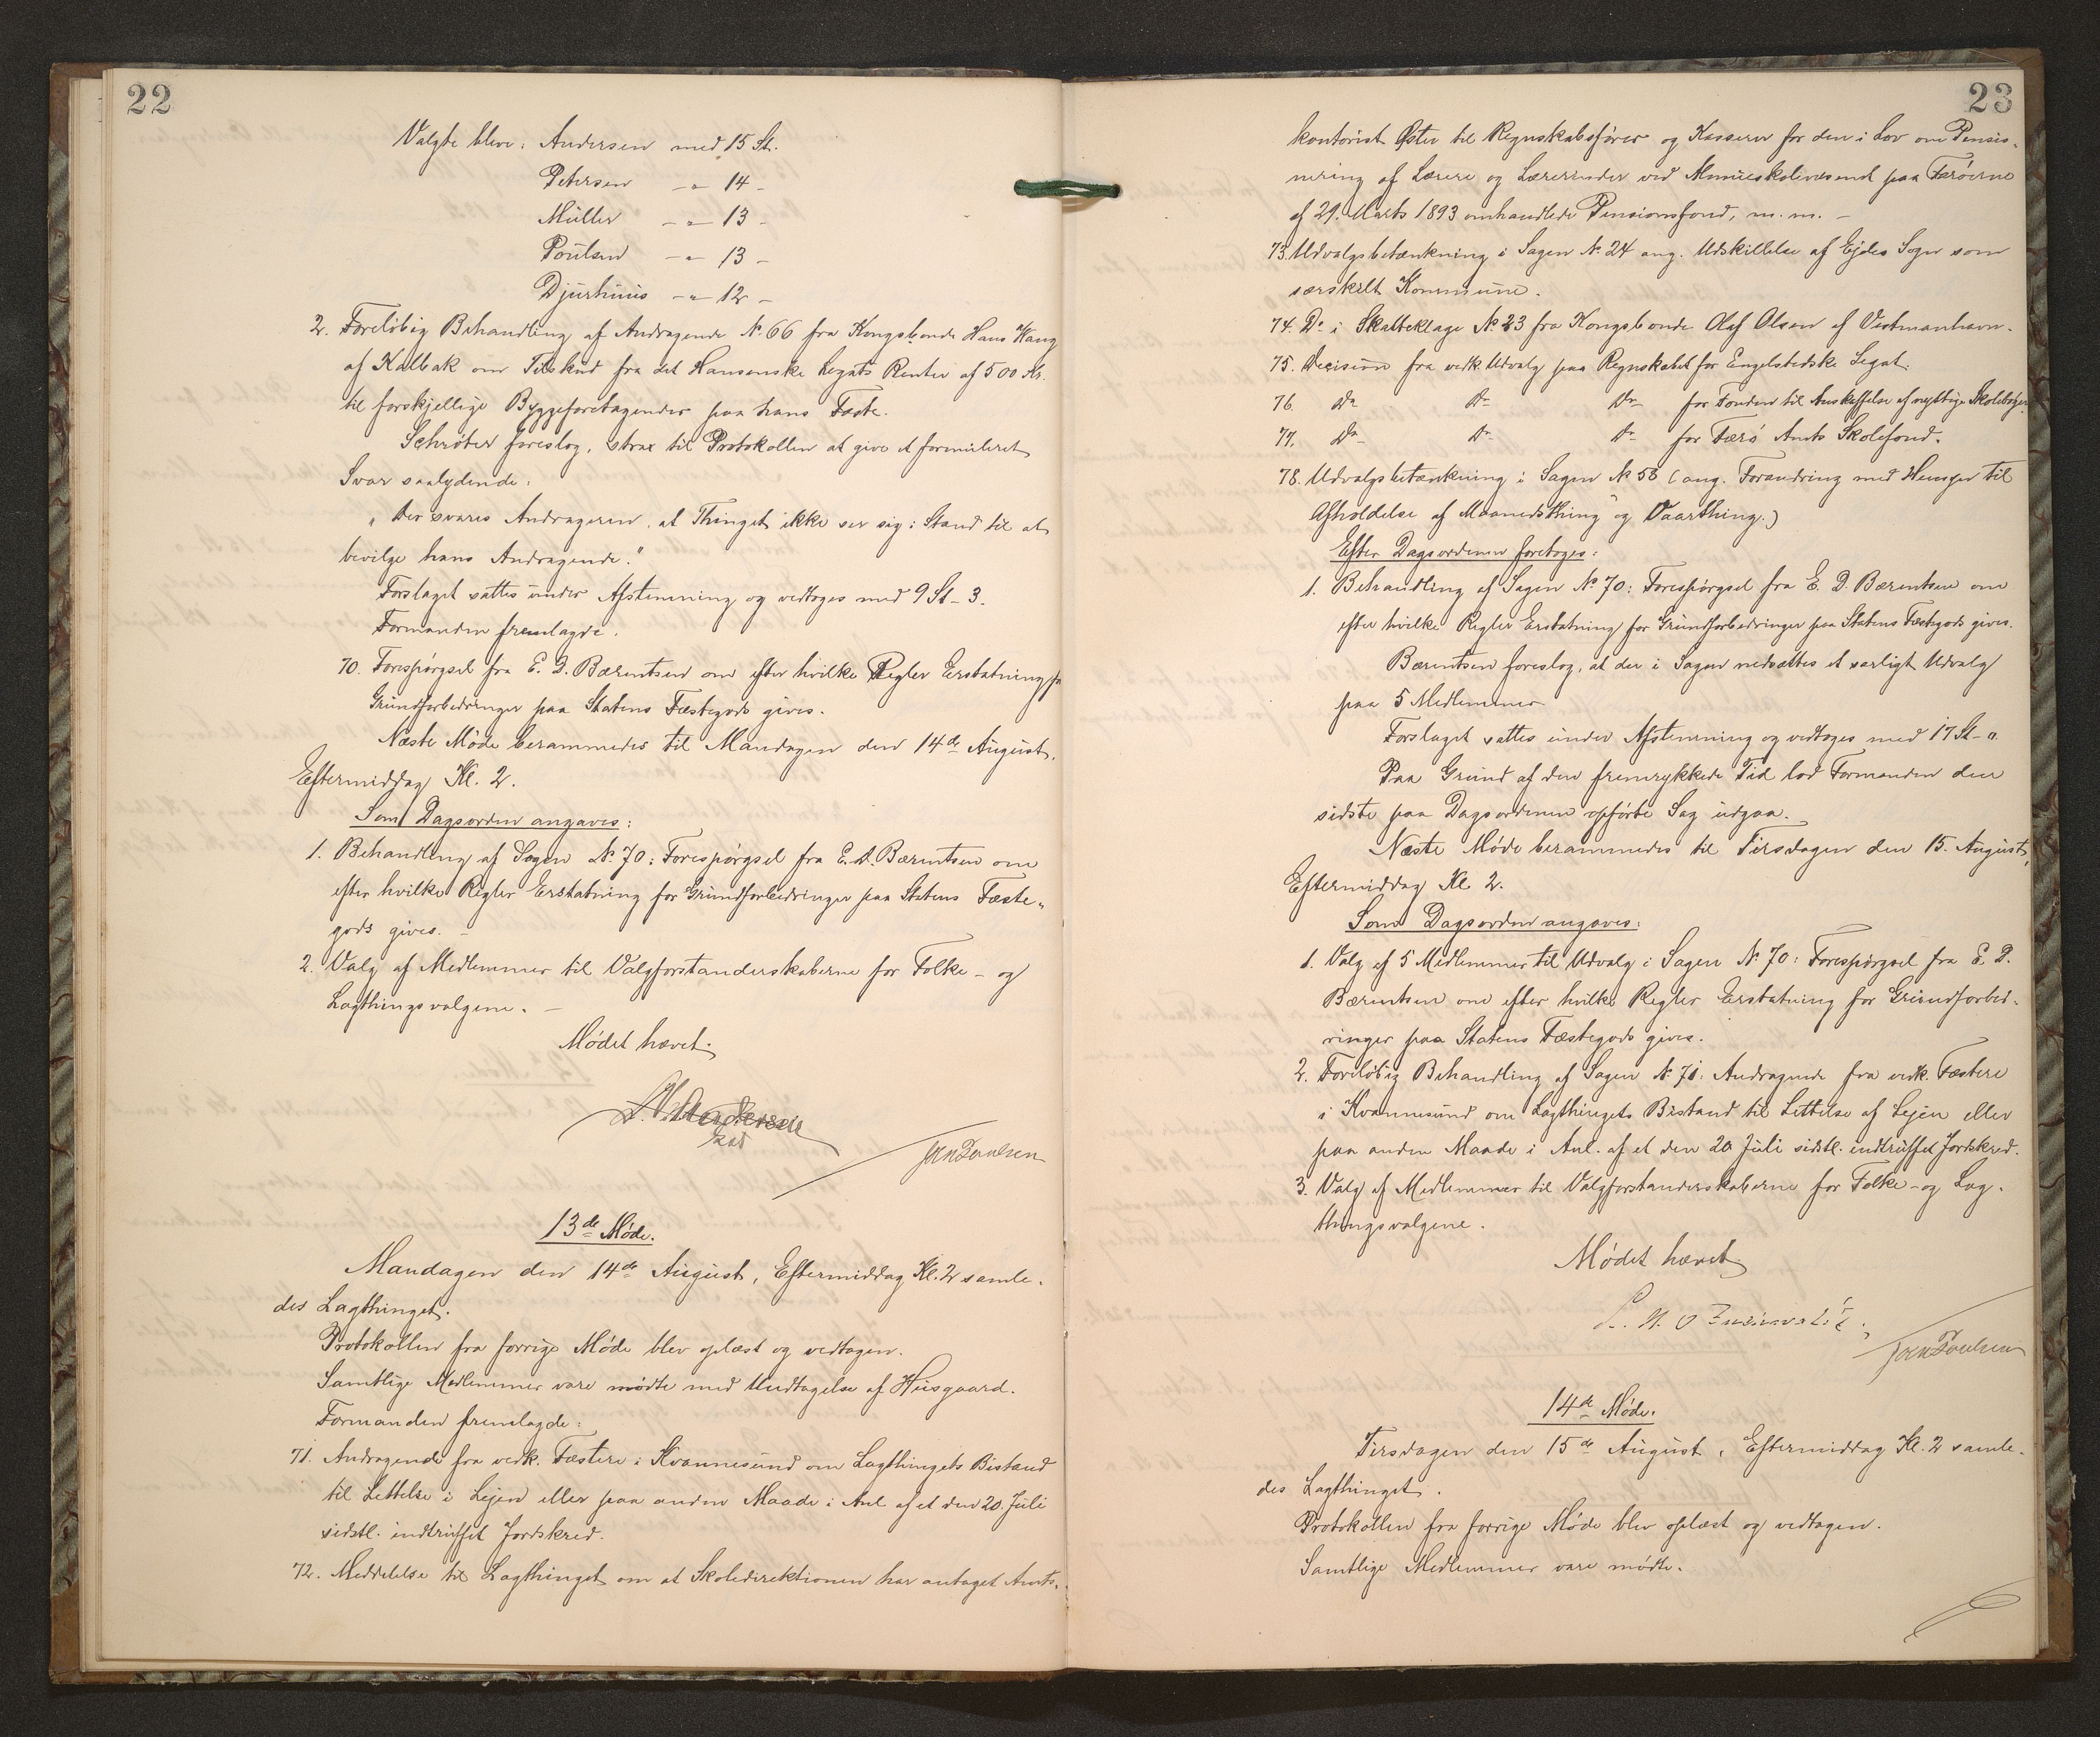 22
Valgte bleve: Andersen med 15 St.
Petersen -"- 14 -
Müller -"- 13 -
Poulsen -"- 13 -
Djurhuus -"- 12 -
2. Foreløbig Behandling af Andragende No 66 fra Kongsbonde Hans
af Kalbak om Tilskud fra det Hansenske Legats Renter af 500 Kr.
til forskjellige Byggeforetagender paa hans Fæste.
Schrøter foreslog, strax til Protokollen at give et formuleret
Svar saalydende:
"Der svares Andrageren, at Thinget ikke ser sig i Stand til at
bevilge hans Andragende."
Forslaget sattes under Afstemning og vedtoges med 9 St - 3.
Formanden fremlagde.
70. Forespørgsel fra E. D. Bærentsen om efter hvilke Regler Erstatning for
Grundforbedringer paa Statens Fæstegods gives.
Næste Møde berammedes til Mandagen den 14de August,
Eftermiddag Kl. 2.
Som Dagsorden angaves:
1. Behandling af Sagen No. 70: Forespørgsel fra E. D. Bærentsen om
efter hvilke Regler Erstatning for Grundforbedringer paa Statens Fæste-
gods gives. -
2. Valg af Medlemmer til Valgforstanderskaberne for Folke- og
Lagthingsvalgene. -
Mødet hævet.
13de Møde.
Mandagen den 14de August, Eftermiddag Kl. 2 samle-
des Lagthinget.
Protokollen fra forrige Møde blev oplæst og vedtagen.
Samtlige Medlemmer vare mødte med Undtagelse af Huusgaard.
Formanden fremlagde:
71. Andragende fra vedk. Fæstere i Kvannesund om Lagthingets Bistand
til Lettelse i Lejen eller paa anden Maade i Anl. af et den 20. Juli
sidstl. indtruffet Jordskred.
72. Meddelelse til Lagthinget om at Skoledirektionen har antaget Amts-
23
kontorist Øster til Regnskabsfører og Kasserer for den i Lov om Pensio-
nering af Lærere og Lærerinder ved Almueskolevæsenet paa Færøerne
af 29. Marts 1893 omhandlede Pensionsfond, m.m. -
73. Udvalgsbetænkning i Sagen No 24 ang. Udskillelse af Ejdes Sogn som
særskilt Kommune.
74. Do i Skatteklage No 23 fra Kongsbonde Olaf Olsen af Vestmanhavn.
75. Decision fra vedk. Udvalg paa Regnskabet for Engelstedske Legat.
76. Do Do Do for Fonden til Anskaffelse af nyttige Skolebøger.
77. Do Do Do for Færø Amts Skolefond.
78. Udvalgsbetænkning i Sagen No 58 (ang. Forandring med Hensyn til
Afholdelse af Maanedsthing og Vaarthing.)
Efter Dagsordenen foretoges:
1. Behandling af Sagen No 70: Forespørgsel fra E. D. Bærentsen om
efter hvilke Regler Erstatning for Grundforbedringer paa Statens Fæstegods gives.
Bærentsen foreslog, at der i Sagen nedsættes et særligt Udvalg
paa 5 Medlemmer
Forslaget sattes under Afstemning og vedtoges med 17 St - 0.
Paa Grund af den fremrykkede Tid lod Formanden den
sidste paa Dagsordenen opførte Sag udgaa.
Næste Møde berammedes til Tirsdagen den 15. August,
Eftermiddag Kl 2.
Som Dagsorden angaves:
1. Valg af 5 Medlemmer til Udvalg i Sagen No 70: Forespørgsel fra E. D.
Bærentsen om efter hvilke Regler Erstatning for Grundforbed-
ringer paa Statens Fæstegods gives.
2. Foreløbig Behandling af Sagen No 71: Andragende fra vedk. Fæstere
i Kvannesund om Lagthingets Bistand til Lettelse af Lejen eller
paa anden Maade i Anl. af et den 20 Juli sidstl. indtruffet Jordskred.
3. Valg af Medlemmer til Valgforstanderskaberne for Folke- og Lag-
thingsvalgene.
Mødet hævet
14de Møde.
Tirsdagen den 15de August, Eftermiddag Kl. 2 samle-
des Lagthinget.
Protokollen fra forrige Møde blev oplæst og vedtagen.
Samtlige Medlemmer vare mødte.